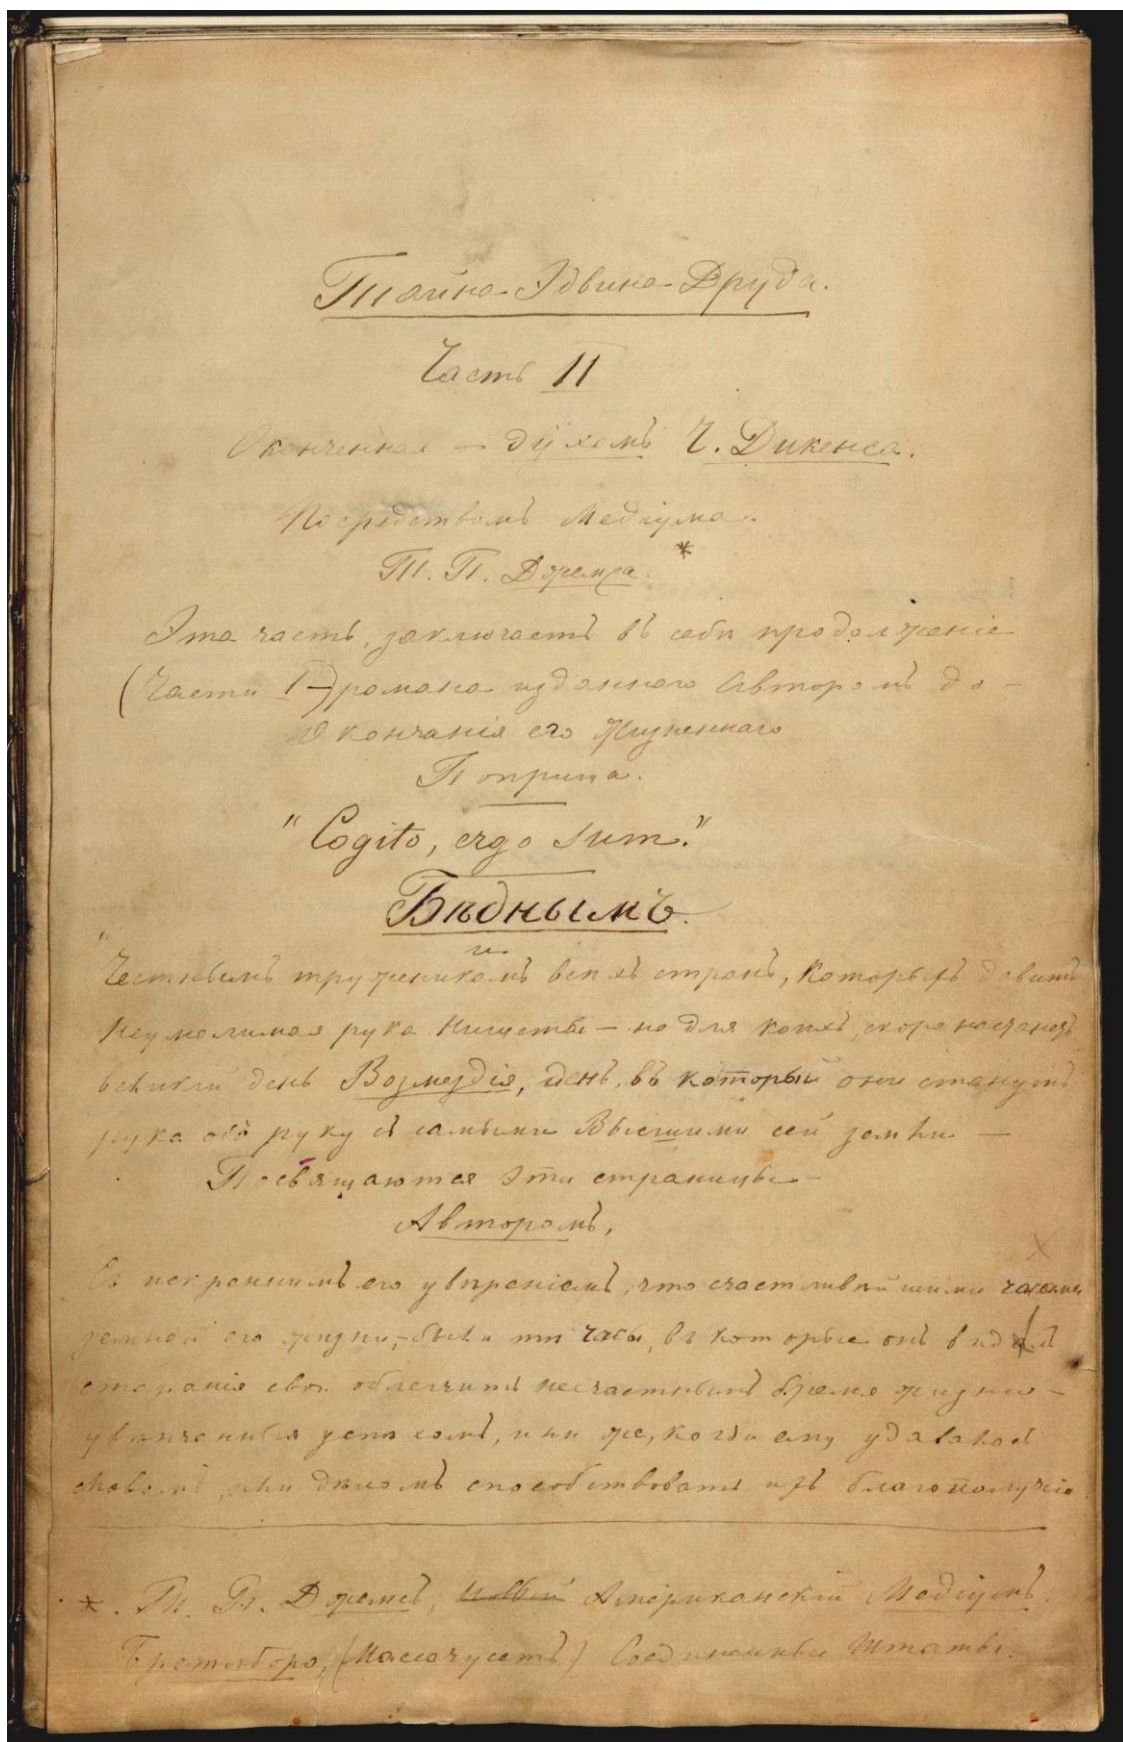 Тайна Эдвина Друда.
Часть II
Оконченная — духомъ Ч. Дикенса.
Посредствомъ Медіума.
Т. П. Джемса. *
Эта часть, заключаетъ въ себѣ продолженіе
(Части I–) романа изданнаго Авторомъ до –
Окончанія его Жизненнаго
Поприща.
"Cogito, ergo sum."
Бѣднымъ.
и
"Честнымъ труженикамъ всѣхъ странъ, которыхъ давитъ
Неумолимая рука Нищеты — но для коихъ, скоро настанетъ
великій день Возмездія, день, въ который они станутъ
рука объ руку съ самыми Высшими сей земли —
Посвящаются эти страницы —
Авторомъ,
Съ искреннимъ его увѣреніемъ, что счастливѣйшими часами
земной его жизни,– были тѣ часы, въ которые онъ видѣлъ
старанія свои облегчить несчастнымъ бремя жизни –
увѣнчанныя успѣхомъ, или же, когда ему удавалось
словомъ, или дѣломъ способствовать ихъ благополучію
*. Т. П. Джемсъ, новый Американскій Медіумъ.
Бретльборо, (Массачусетъ) Соединенные Штаты.